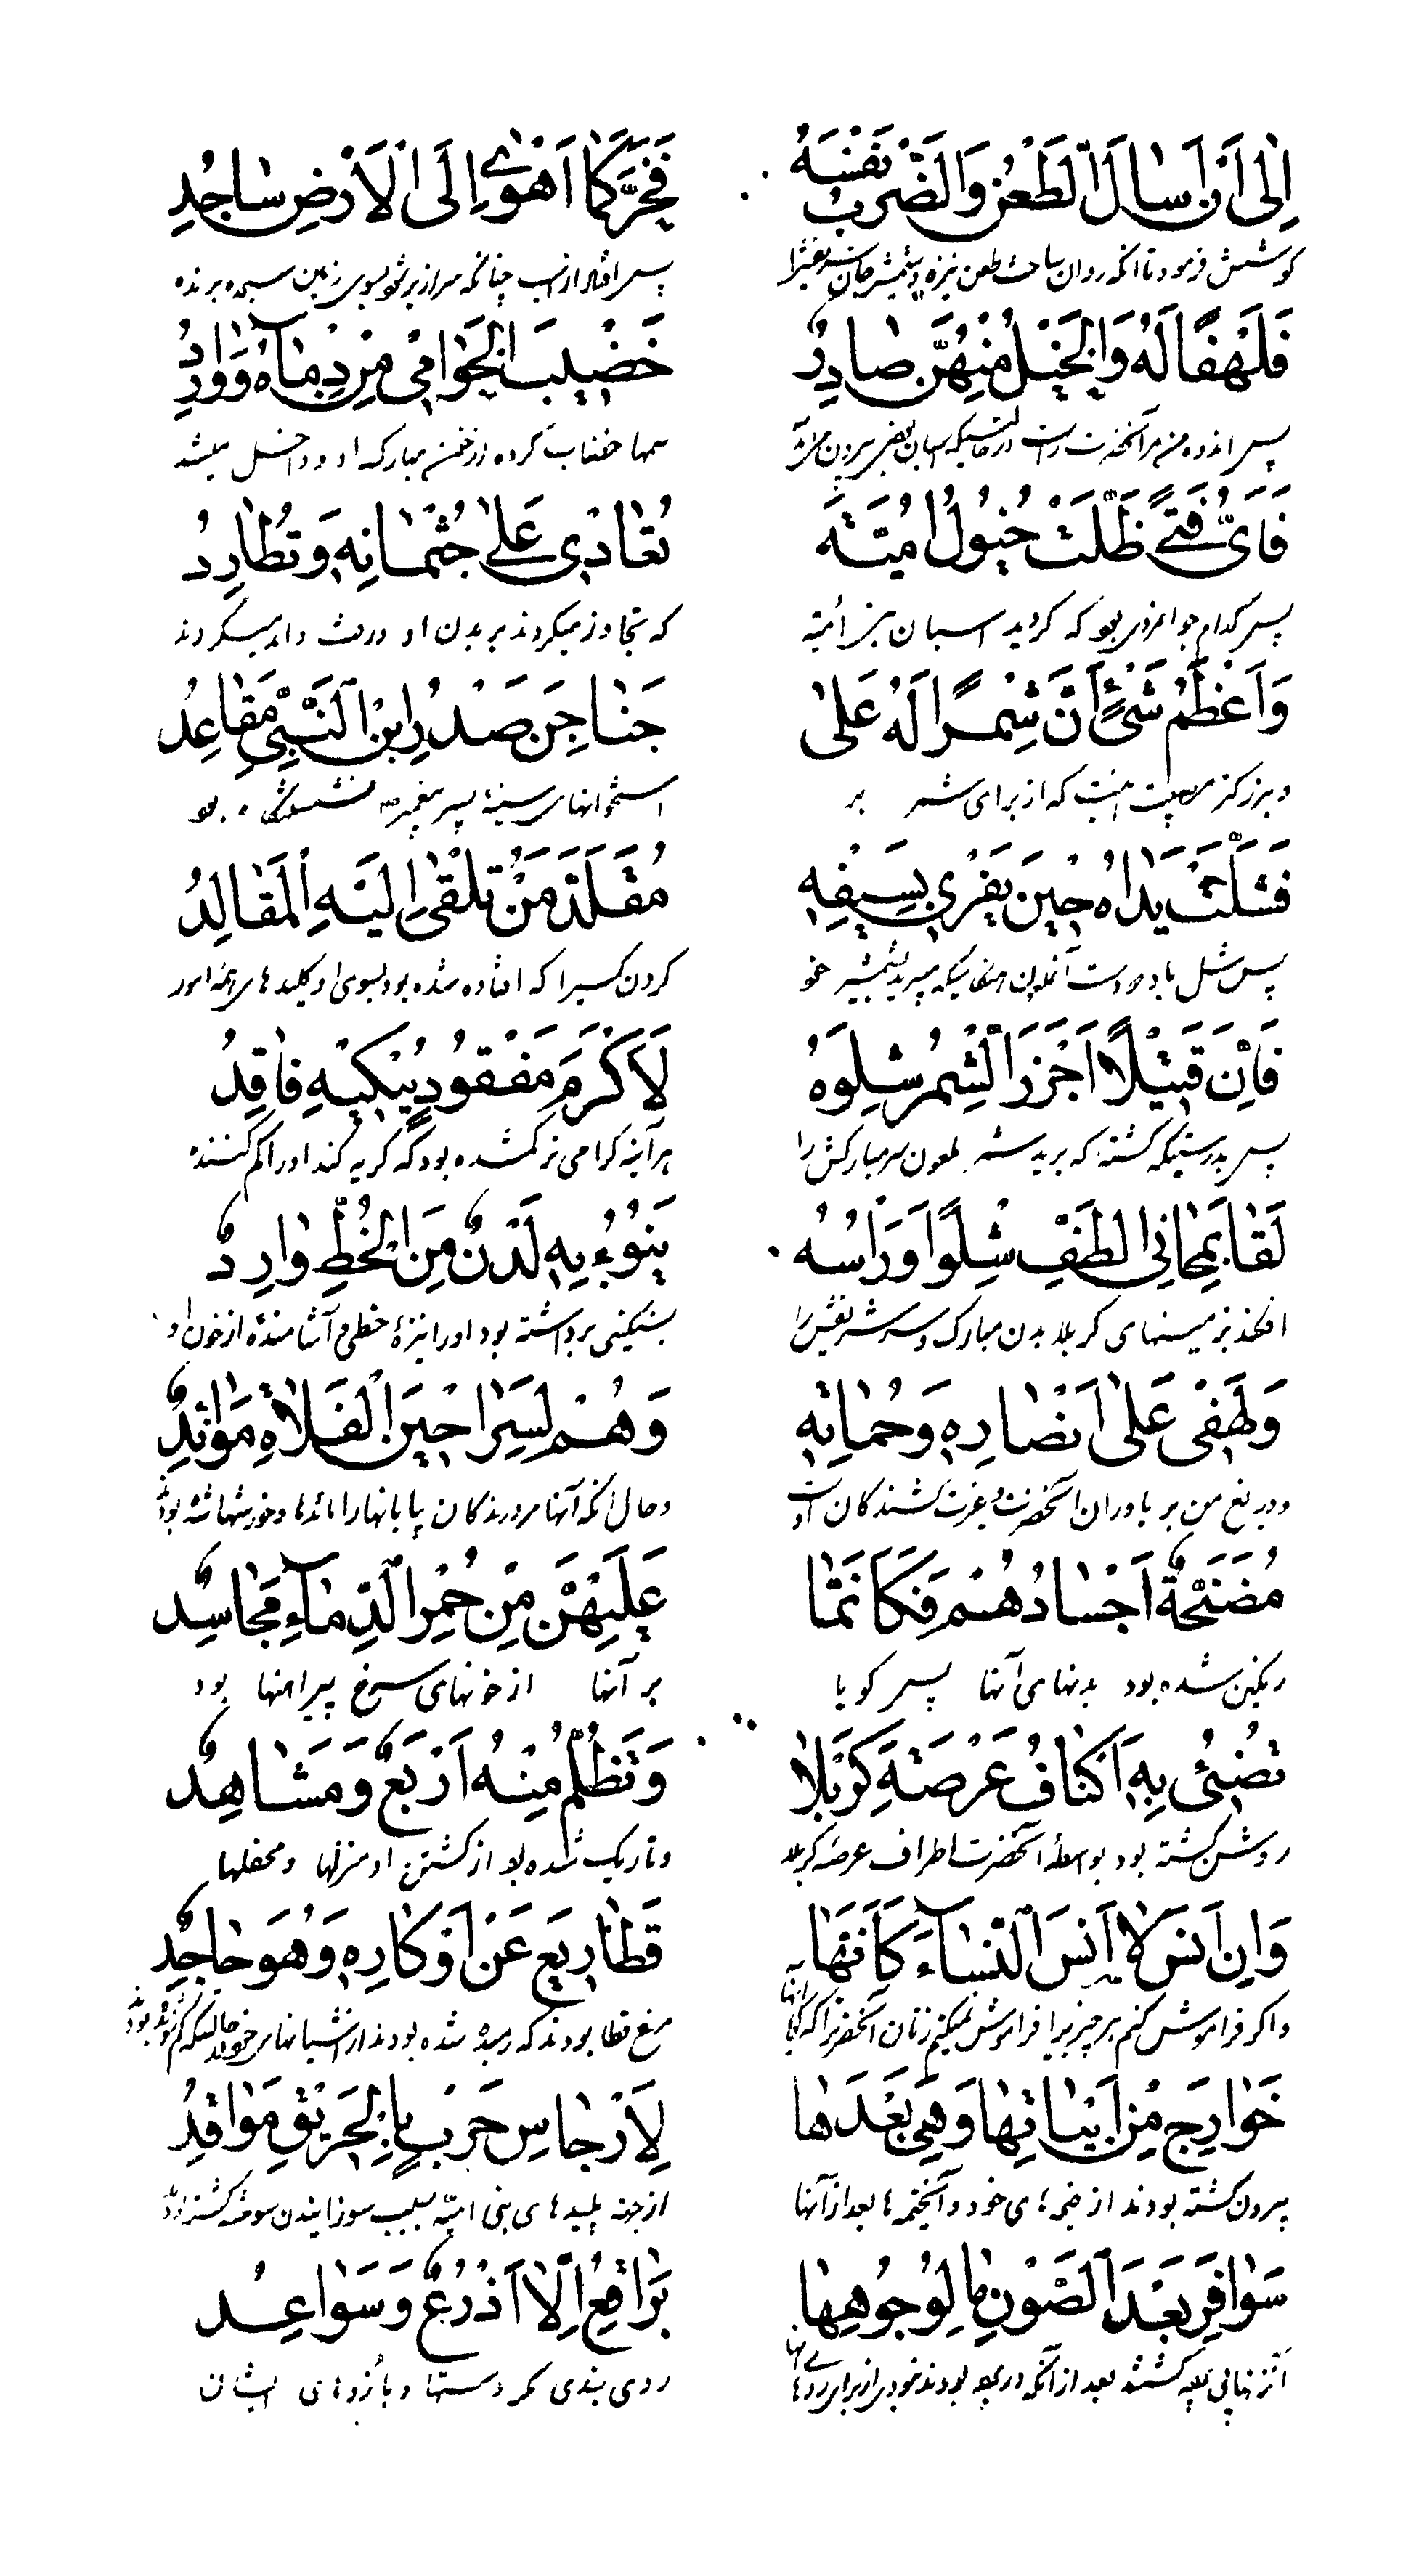 اِلٰى اَنْ اَسٰالَ الطَّعْنُ وَالضَّرْبُ نَفْسَهُ فَخَرَّ كَمٰا اَهْوٰى اِلَى الْاَرْضِ سٰاجِدُ
پس افتاد از اسب چنانکه سرازیر شود بسوی زمین سجده برنده
فَلَهْفًا لَهُ وَالْخَيْلُ مِنْهُنَّ صٰادِرٌ خَضٖيبُ الْحَوٰامٖى مِنْ دِمٰآهُ وَوٰارِدُ
سمها خضاب کرده از خون مبارک او و داخل میشد
فَاَىُّ فَتًى ظَلَّتْ خُيُولُ اُمَيَّةَ تُعٰادٖى عَلٰى جُثْمٰانِهٖ وَتُطٰارِدُ
پس کدام جوانمردی بود که گردید اسبان بنی امیّه که تجاوز میکردند بر بدن او و
وَاَعْظَمُ شَىْءٍ اَنَّ شِمْرًا لَهُ عَلٰى جَنٰاجِنِ صَدْرِ ابْنِ النَّبِىِّ مَقٰاعِدُ
و بزرگتر مصیبت اینست که از برای شمر بر استخوانهای سینهٔ پسر پیغمبر بود
فَشَلَّتْ يَدٰاهُ حٖينَ يَفْرٖى بِسَيْفِهٖ مُقَلَّدَ مَنْ تُلْقٰى اِلَيْهِ الْمَقٰالِدُ
پس شل باد دو دست آن هنگامیکه میبرید بشمشیر خود گردن کسیرا که افتاده شده بود بسوی او کلیدهای همه امور
فَاِنَّ قَتٖيْلًا اَحْرَزَ الشِّمْرُ شِلْوَهُ لَاَكْرَمُ مَفْقُودٍ يُبَكّٖيهِ فٰاقِدُ
پس بدرستیکه کشتهٔ که برید شمر ملعون سر مبارکش را هرآینه گرامی تر گمشده بود که گریه کند او را گم کننده
لَقٰا بِمَحٰانِى الطَّفِّ شِلْوًا وَرَاْسُهُ يَنُوْءُ بِهٖ لَدْنٌ مِنَ الْخَطِّ وٰارِدٌ
بر زمینهای کربلا بدن مبارک و سر شریفش را بسنگینی برداشته بود او را نیزهٔ خطی آشامنده از خون او
وَلَهْفٖى عَلٰى اَنْصٰارِهٖ وَحُمٰاتِهٖ وَهُمْ لِسَرٰاحٖينِ الْفَلٰاةِ مَوٰائِدٌ
و دریغ من بر یاوران آنحضرت و عزت کشندگان و حال آنکه آنها مر درندگان بیابانها را مائدها و خورشها شده بود
مُضَمَّخَةٌ اَجْسٰادُهُمْ فَكَاَنَّمٰا عَلَيْهِنَّ مِنْ حُمْرِ الدِّمٰآءِ مَجٰاسِدٌ
رنگین شده بود بدنهای آنها پس گویا بر آنها از خونهای سرخ پیراهنها بود
تُضٖئُ بِهٖ اَكْنٰافُ عَرْصَةِ كَرْبَلٰا وَتَظْلُمُ مِنْهُ اَرْبُعٌ وَمَشٰاهِدٌ
روشن گشته بود بواسطهٔ آنحضرت اطراف عرصهٔ کربلا و تاریک شده بود از کشتن او منزلها و محفلها
وَاِنْ اَنْسَ لٰا اَنْسَ النِّسٰآءَ كَاَنَّهٰا قَطٰارٖيعَ عَنْ اَوْكٰارِهٖ وَهُوَ حٰاجِدٌ
و اگر فراموش کنم هر چیز را فراموش نمیکنم زنان آنحضرت را که گویا آنها مرغ قطا بودند که شده بودند از آشیانهای خود
خَوٰارِجَ مِنْ اَبْيٰاتِهٰا وَهِىَ بَعْدَهٰا لِاَرْجٰاسِ حَرْبٍ بِالْحَرٖيقِ مَوٰاقِدُ
بیرون گشته بودند از خیمه‌های خود و آنخیمه‌ها بعد از آنها از جهة پلیدهای بنی امیّه بسبب سوزانیدن
سَوٰافِرَ بَعْدَ الصَّوْنِ مٰا لِوُجُوهِهٰا بَرٰاقِعُ اِلّٰا اَذْرُعٌ وَسَوٰاعِدُ
بعد از آنکه در پرده بودند نبود از برای روهای آنها روی بندی مگر دستها و بازوهای ایشان